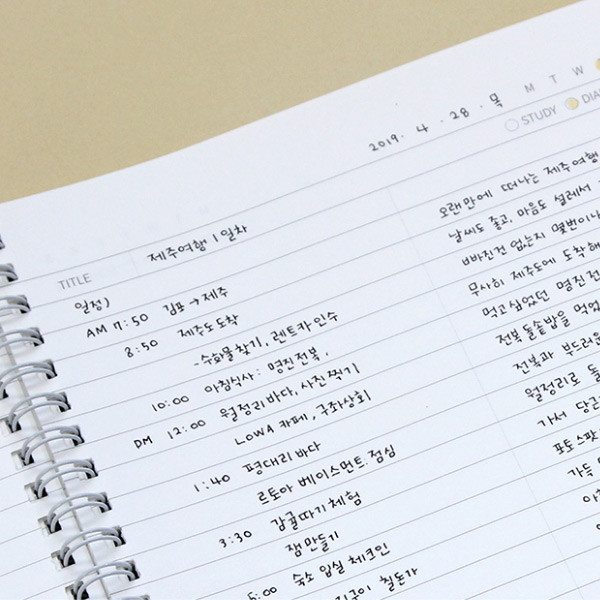 M T W
2019. 4. 28. 목
STUDY DIA
TITLE 제주여행 1일차
일정)
AM 7:50 김포→제주
8:50 제주도도착
-수화물찾기, 렌트카인수
10:00 아침식사: 명진전복,
DM 12:00 월정리바다, 사진찍기
LOWA 카페, 구좌상회
1:40 평대리바다
르토아 베이스먼트. 점심
3:30 감귤따기체험
잼만들기
5:00 숙소 입실 체크인
칠돈가
오랜만에 떠나는 제주여행
날씨도 좋고, 마음도 설레서
빠진건 없는지 몇번이나
무사히 제주도에 도착해
먹고싶었던 명진전
전복돌솥밥을 먹었
전복과 부드러운
월정리로 돌
가서 당근
포토스팟
가득